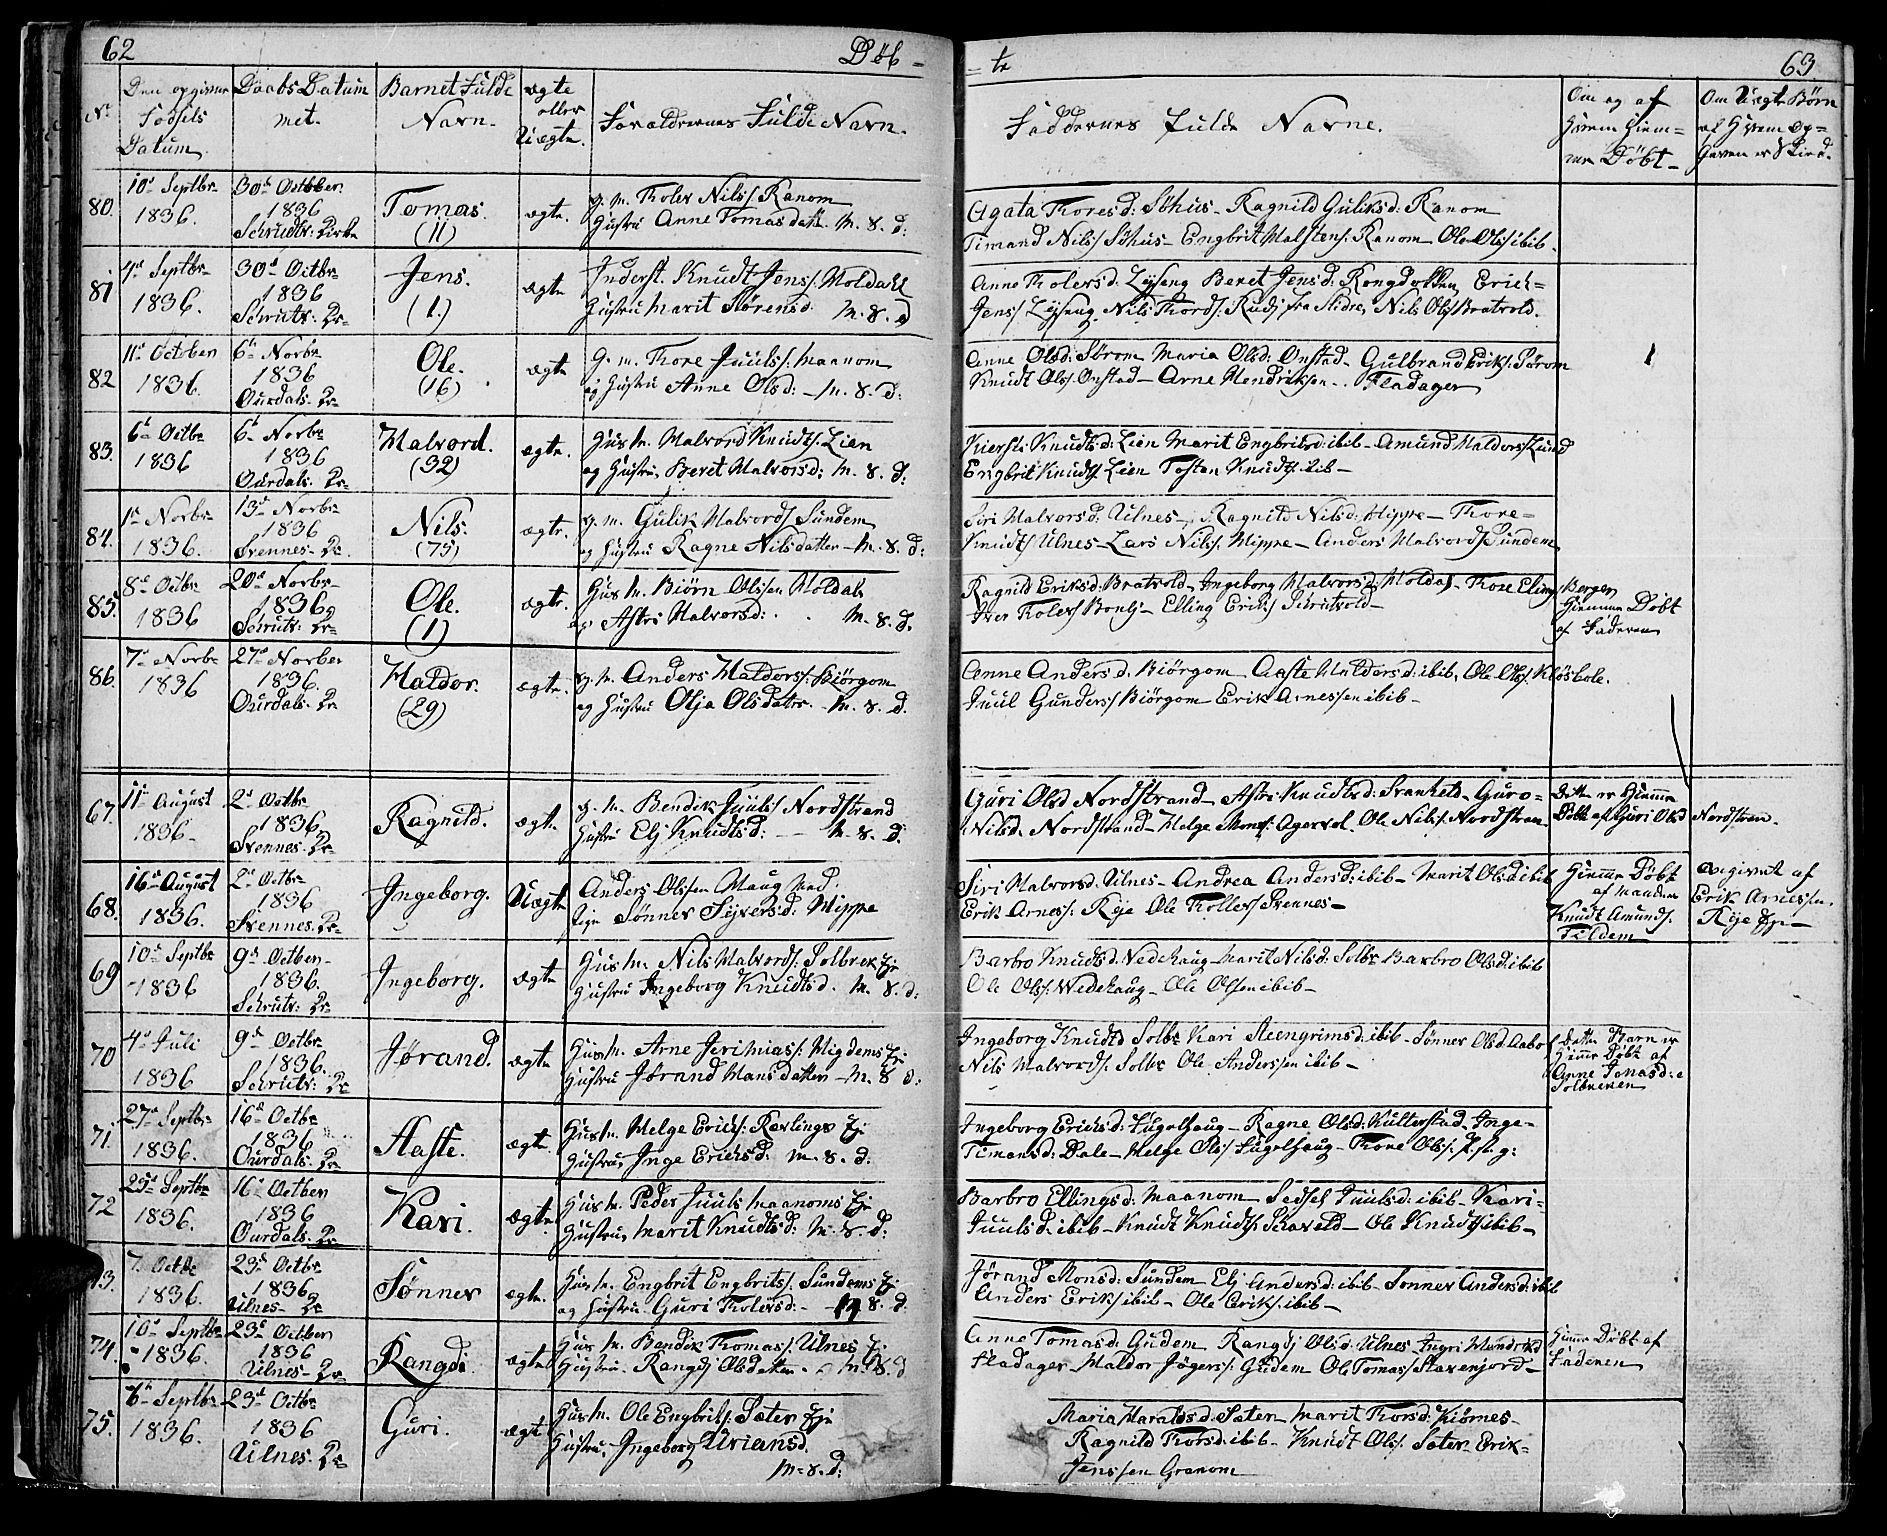 62 Døb=
=te 63
No
Den opgivne Fødsels Datum
Daabs Datum met.
Barnet Fulde Navn.
ægte eller Uægte.
Forældrernes Fulde Navn.
Faddernes fulde Navne.
Om og af Hvem hiemme Døbt
Om Uægte Børn af Hvem op=
80. 10de Septbr 1836. 30te October 1836 Tomas. (11) ægte. g. m. Tholev Nils/. Ranom
Hustru Anne Tomasdatter M. 8. d:
Agata Thoresd: Søhus Ragnild Guliksd: Ranom
Timand Nils/ Søhus Engbrit Halstens/. Ranom Ole Ols/ ibib.
81 4de Septbr 1836. 30te Octbr 1836 Jens. (1.) ægte Inderst. Knudt Jens/. Moldahl
Hustru Marit Sørensd. M. 8. d
Anne Tholersd. Beret Jensd: Erick=
Jens/ Nils Thords/. fra Slidre, Nils Ols/ Bratvold.
82 11te October 1836. 6te Novbr 1836 Ourdals. Ole. (16) ægte G. m. Thore Juuls/. Maanom
og Hustru Anne Olsd: M. 8. d:
Anne Olsd: Sørom Maria Olsd: Onstad Gulbrand Eriks/. Sørom
Knudt Ols/. Onstad Arne Hendriksen Fladager
83. 6te Octbr 1836 6te Novbr 1836 Ourdals. Halvord. (32) ægte. Hus m. Halvord Knudts/. Lien
og Hustru Beret Halvorsd: M. 8. d:
Kiersti Knudtsd: Lien Marit Engbriksd: ibib Amund Haldors/ Lund
Engbrik Knudts/ Lien Tosten Knudts/ ibib
84. 1te Novbr 1836. 13de Novbr 1836 Svennes Nils. (75) ægte. g. m. Gulik Halvords/ Sundem
og Hustru Ragne Nilsdatter M. 8. d:
Siri Halvorsd: Ulnes Ragnild Nilsd: Hippe Thore=
Knudts/ Ulnes Lars Nils/. Hippe Anders Halvords/ Sundem
85. 8de Octbr 1836 20de Novbr 1836 Ole. (1) ægte. Hus m. Biørn Olssen Moldal
og Astri Halvorsd: M. 8. d.
Ragnild Eriksd: Bratvold Ingeborg Halvorsd. Moldal Thore Elling/ Bergen
Iver Tholers/ Elling Eriks/
Hiemme Døbt
af Faderen
86. 7de Novbr 1836 27de Novber 1836. Ourdals. Haldor. (29) ægte. g. m. Anders Haldors/. Biørgom
og Hustru Olja Olsdatter M. 8. d.
Anne Andersd. Biørgom Aaste Haldorsd. ibib, Ole Ols/.
Juul Gunders/ Biørgom Erik Arnessen ibib
67. 11te August 1836 2de Octbr 1836. Svennes. Ragnild. ægte. g. m. Bendik Juuls/ Nordstrand
Hustru Elj Knudtsd: M. 8. d.
Guri Olsd Nordstrand Astri Knudtsd: Guro
Nilsd. Nordstrand Helge Ole Nils/. Nordstran
Dette er Hiemme
Døbt af Guri Olsd Nordstran.
68. 16de August 1836. 2de Octbr 1836 Svennes. Ingeborg. Uægte Anders Olssen Haug Med.
Pige Sønner Sijversd: Hippe
Siri Halvorsd. Ulnes Andrea Andersd: ibib Marit Olsd ibib
Erik Arnes/: Rye Ole Svennes
Hiemme Døbt
af Manden
Knudt Amunds/.
Fildem
Angivet af
Erik Arnessen.
69 10de Septbr 1836 9de October 1836. Ingeborg. ægte Hus m. Nils Halvords/. Solbrek
Hustru Ingeborg Knudtsd. M. 8. d:
Barbro Knudtsd. Vedehaug Marit Nilsd: Solbr Barbro Olsd: ibib
Ole Ols/. Wedehaug Ole Olsen ibib
70 4de Juli 1836 9de Octbr 1836. Jørand. ægte Hus m. Arne Jerimias/: Migdems
Hustru Jørand Hansdatter M. 8 d:
Ingeborg Knudtd Solbr Kari Steengrimsd. ibib Sønner Olsd. Aabo
Nils Halvords/. Solbr Ole Anderssen ibib
Dette Barn er
Hiemme Døbt af
Anne Jonasd:
Solbrenen
71. 27de Septbr 1836. 16de Octbr 1836 Ourdals. Aaste. ægte Hus m. Helge Ericks/: Kerlings
Hustru, Inge Ericksd: M. 8. d.
Ingeborg Ericksd: Fugelhaug Ragne Olsd: Kulterstad Inge
Timansd: Dale Helge Ols/ Fugelhaug Thore Ols/.
72 25de Septbr 1836. 16de Octber 1836 Ourdals. Kari. ægte. Hus m. Peder Juuls Maanoms
Hustru, Marit Knudtsd: M. 8. d:
Barbro Ellingsd: Maanom Sidsel Juulsd: ibib Kari=
Juulsd: ibib Knudt Knudts/. Skavold Ole Knudts/ ibib
73. 7de Octbr 1836. 23de Octbr 1836 Ulnes Sønner ægte. Hus m. Engbrit Engbrits/. Sundems
og Hustru Guri Tholersd: 8. d:
Jørand Monsd: Sundem Elj Andersd: ibib Sønner Andersd: ibib
Anders Eriks/ ibib Ole Eriks/. ibib
74. 10de Septbr 1836. 23de October 1836 Ulnes Rangdi ægte Hus m. Bendik Thomas/. Ulnes
Hustru Rangdj Olsdatter M. 8. d
Anne Tomasd: Gudem Rangdj Olsd. Ulnes Ingri
Fladager Haldor Jøgers/. Gudem Ole Tomas/
Hiemme Døbt af
Faderen
75. 6te Septbr 1836. 23de Octbr 1836 Ulnes. Guri. ægte Hus m. Ole Engbrits/. Sæter
Hustru Ingeborg Uriansd.
M. 8. d:
Maria Haraldsd: Sæter Marit Thorsd: Kiørnes
Ragnild Thorsd: ibib Knudt Ols/. Sæter Erik=
Jenssen Granom